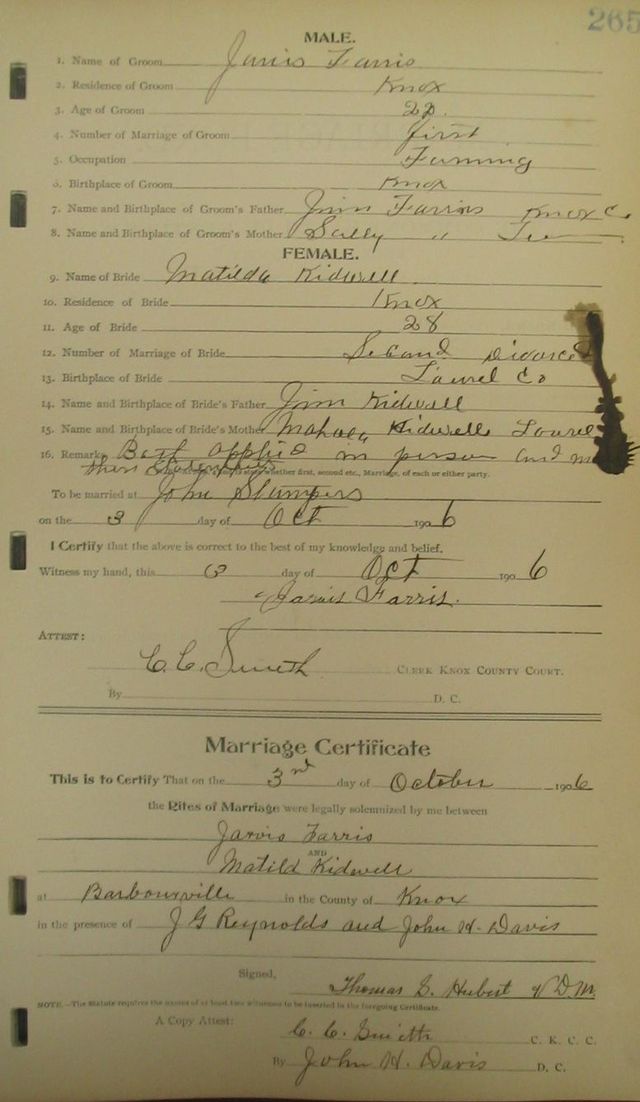 265
MALE.
1. Name of Groom Jarvis Farris
2. Residence of Groom Knox
3. Age of Groom 22
4. Number of Marriage of Groom first
5. Occupation Farming
6. Birthplace of Groom Knox
7. Name and Birthplace of Groom's Father Jim Farris Knox C.
8. Name and Birthplace of Groom's Mother Sally "
FEMALE.
9. Name of Bride Matilda Kidwell
10. Residence of Bride Knox
11. Age of Bride 28
12. Number of Marriage of Bride Second Divorced
13. Birthplace of Bride Laurel Co
14. Name and Birthplace of Bride's Father Jim Kidwell
15. Name and Birthplace of Bride's Mother Kidwell Laurel
16. Remarks Both applied in person and
whether first, second etc., Marriage, of each or either party.
To be married at John Stumpers
on the 3 day of Oct 1906
I Certify that the above is correct to the best of my knowledge and belief.
Witness my hand, this 3 day of Oct 1906
Jarvis Farris.
ATTEST:
C. C. Smith CLERK KNOX COUNTY COURT.
By D. C.
Marriage Certificate
This is to Certify That on the 3rd day of October 1906
the Rites of Marriage were legally solemnized by me between
Jarvis Farris
AND
Matild Kidwell
at Barbourville in the County of Knox
in the presence of J G Reynolds and John H. Davis
Signed, Thomas S. Hubert V.D.M.
NOTE.—The Statute requires the names of at least two witnesses to be inserted in the foregoing Certificate.
A Copy Attest: C. C. Smith C. K. C. C.
By John H. Davis D. C.